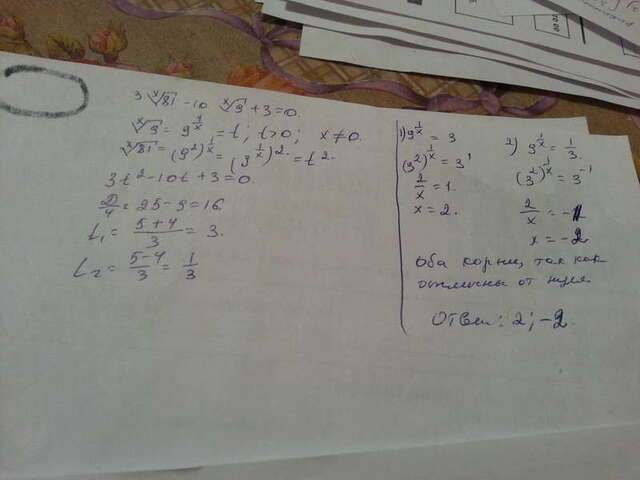 3 ˣ√81 - 10 ˣ√9 + 3 = 0.
ˣ√9 = 9^(1/x) = t; t>0; x≠0.
ˣ√81 = (9²)^(1/x) = (9^(1/x))² = t².
3t² - 10t + 3 = 0.
D/4 = 25 - 9 = 16
t₁ = (5+4)/3 = 3.
t₂ = (5-4)/3 = 1/3
1) 9^(1/x) = 3
(3²)^(1/x) = 3¹
2/x = 1.
x = 2.
2) 9^(1/x) = 1/3.
(3²)^(1/x) = 3⁻¹
2/x = -1
x = -2
оба корни, так как
отличны от нуля
Ответ: 2; -2.